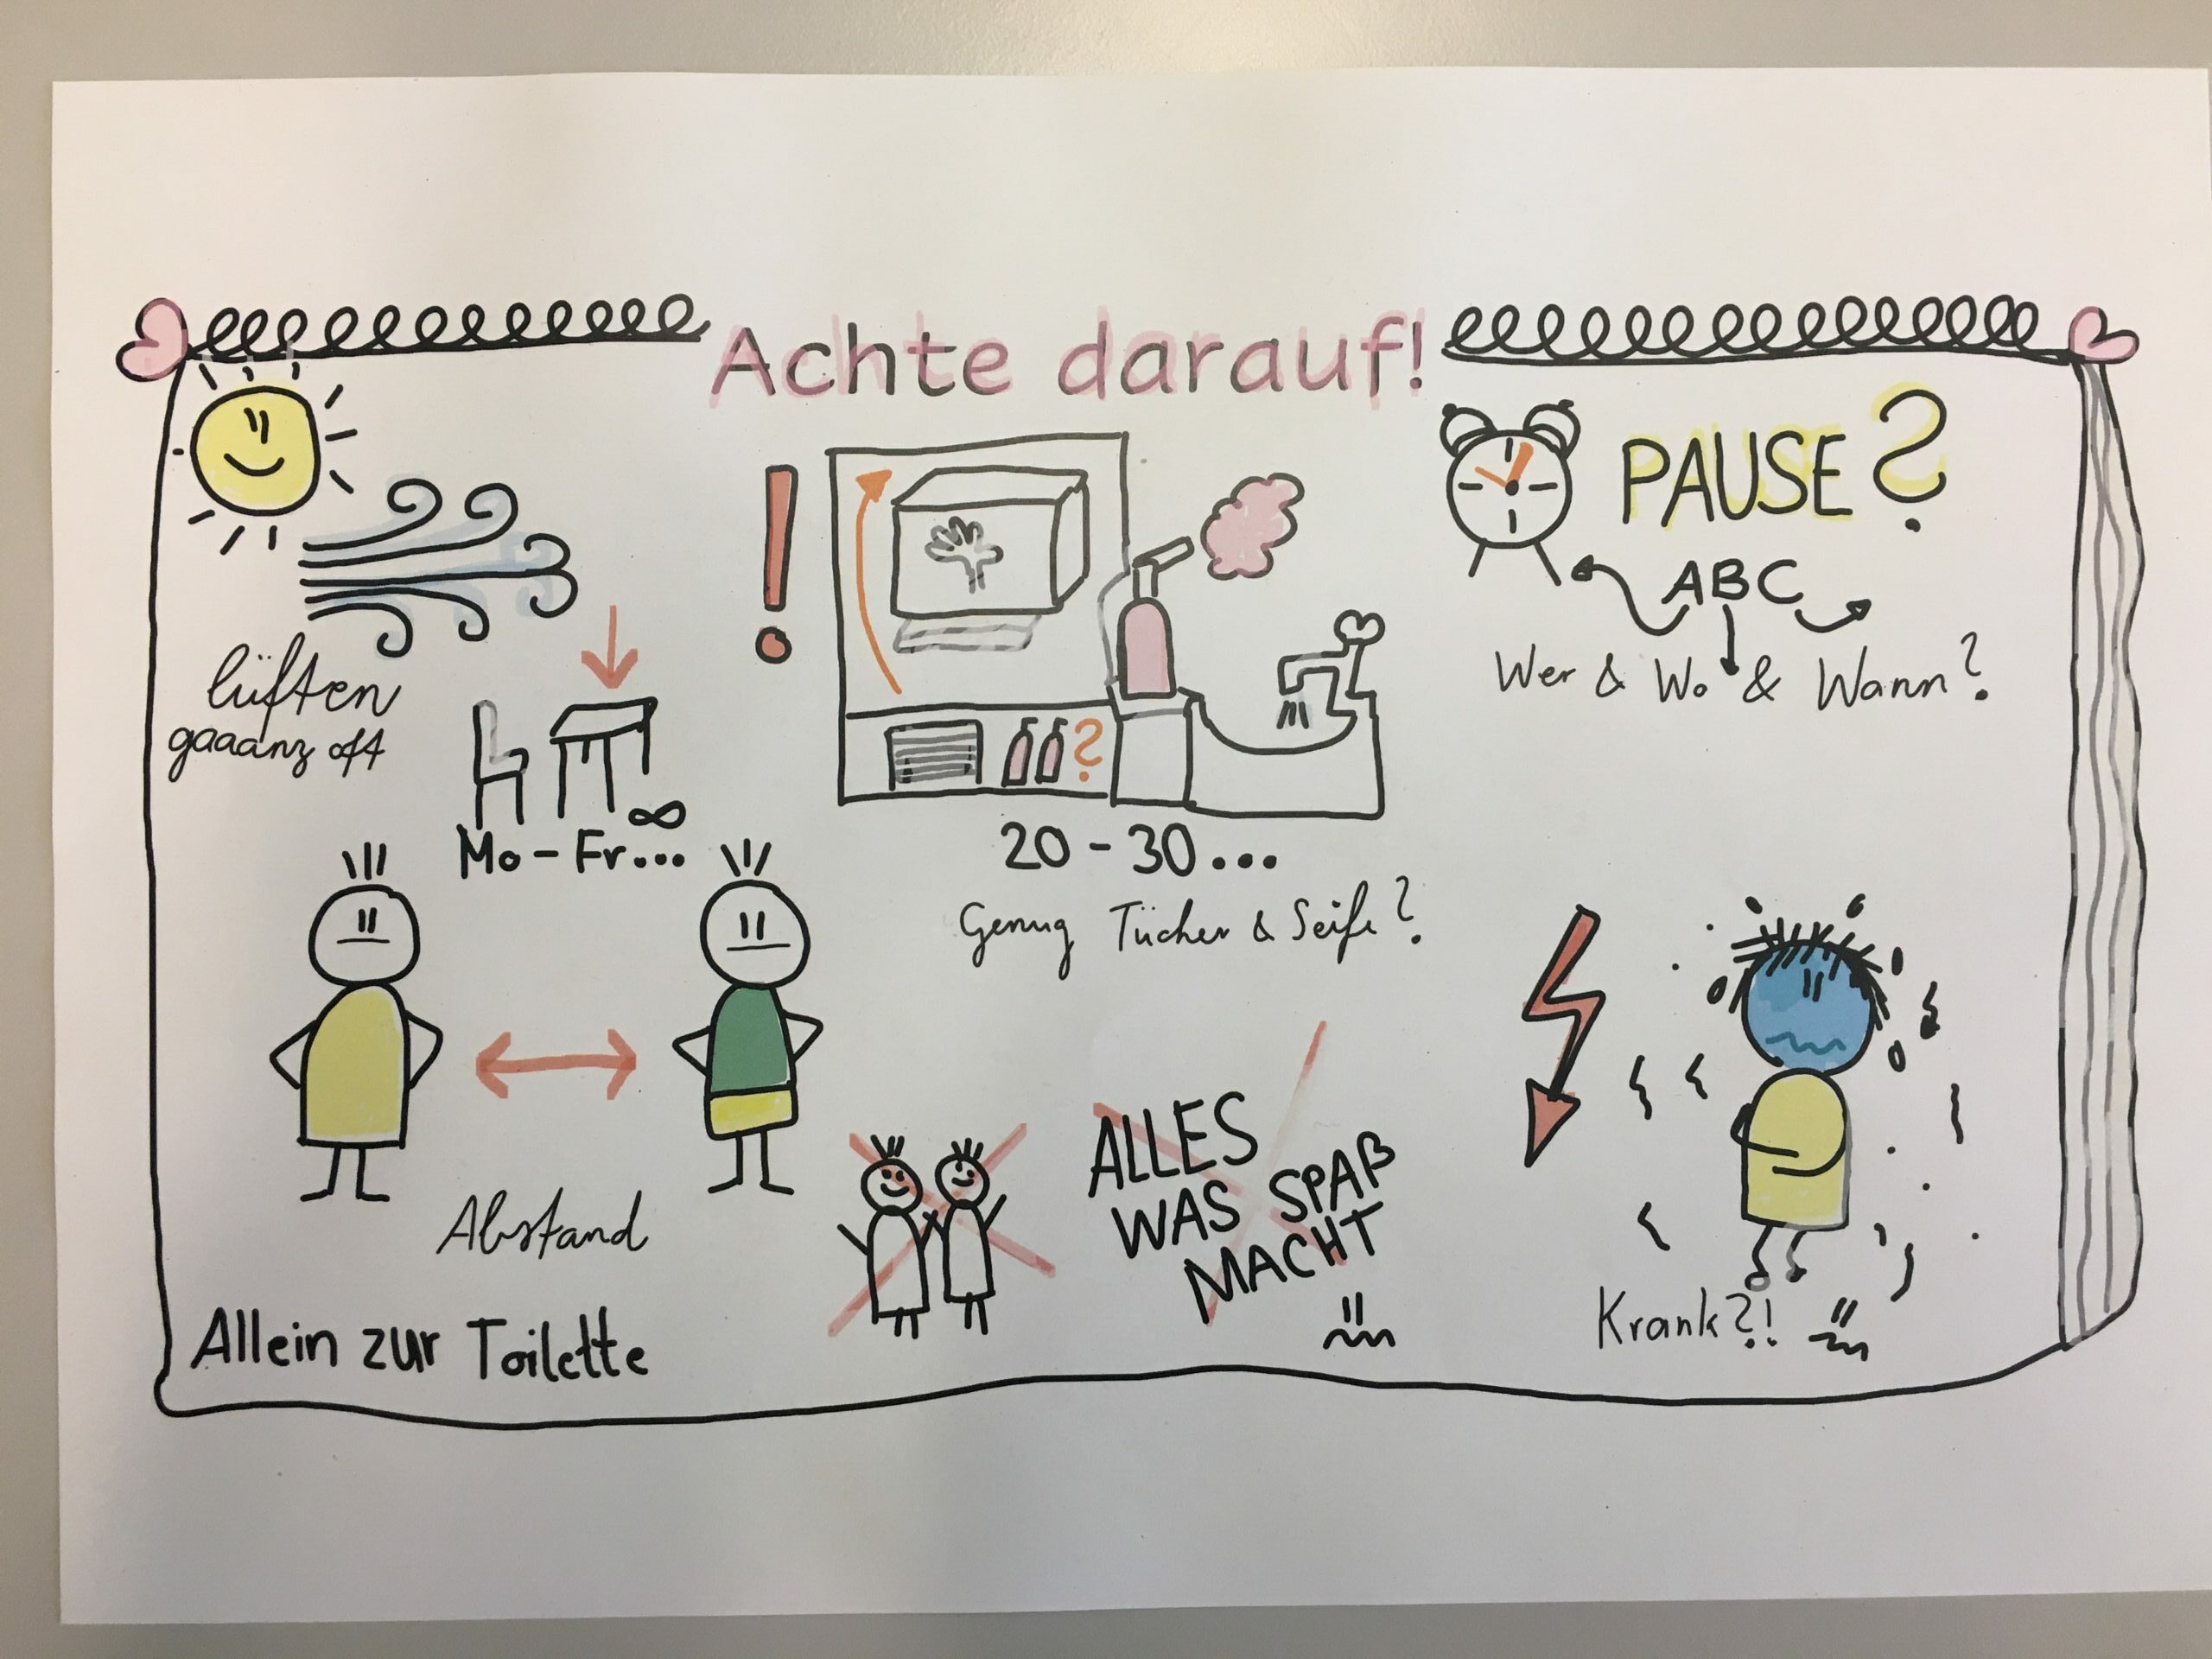 Achte darauf!
lüften
gaaanz oft
Mo-Fr...
∞
20-30...
Genug Tücher & Seife?
?
PAUSE?
ABC
Wer & Wo & Wann?
Abstand
Allein zur Toilette
ALLES
WAS SPAß
MACHT
Krank?!